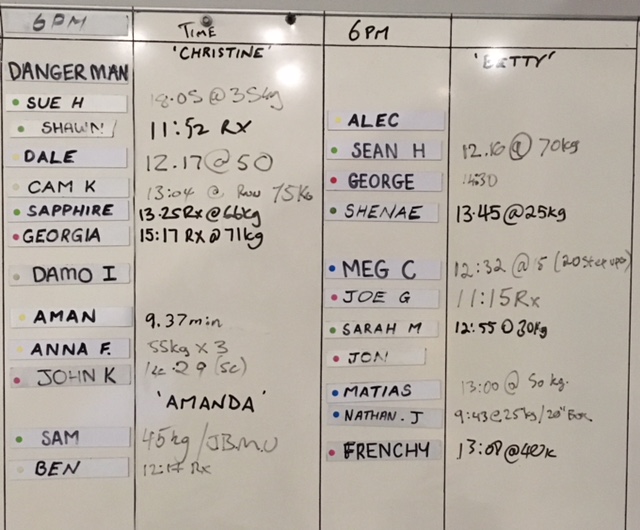 6PM TIME 6PM
'CHRISTINE' 'BETTY'
DANGERMAN
SUE H 18.05 @ 35kg
SHAWN 11:52 RX
DALE 12.17 @ 50
CAM K 13:04 @ Row 75kg
SAPPHIRE 13.25 Rx @ 66kg
GEORGIA 15:17 RX @ 71kg
DAMO I
AMAN 9.37min
ANNA F. 55kg x 3
JOHN K 14.29 (SC)
'AMANDA'
SAM 45kg/JBMU
BEN 12:17 Rx
ALEC
SEAN H 12.10 @ 70kg
GEORGE 14:30
SHENAE 13.45 @ 25kg
MEG C 12:32 @ 15 (20 Step ups)
JOE G 11:15 Rx
SARAH M 12:55 @ 30kg
JON
MATIAS 13:00 @ 50 kg.
NATHAN.J 9:43 @ 25kg/20" Box
FRENCHY 13:08 @ 40k